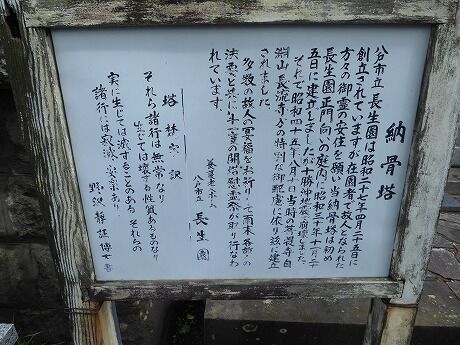 納骨塔
谷市立長生園は昭和二十七年四月二十五日に
創立されていますが在園中で故人となられた
方々の御霊の安住を願い当納骨塔は初め
長生園正門向いの庭内に昭和三十年十一月二十
五日に建立しましたが十勝沖地震で崩壊しました
それで昭和四十五年八月一日当時の菩提寺白
淵山長流寺さの特別な御配慮に依り該に建立
されました
多数の故人の冥福をお祈りして毎年各宗の
法要と共に年一霊の開帳慰霊祭が取り行なわ
れています。
養護老人ホーム
八戸市立 長生園
塔林 訳
それら諸行は無常なり
生じては壊する性質あるものなり
実に生じては滅することのあり それらの
諸行には寂滅 楽あり
野沢 博士